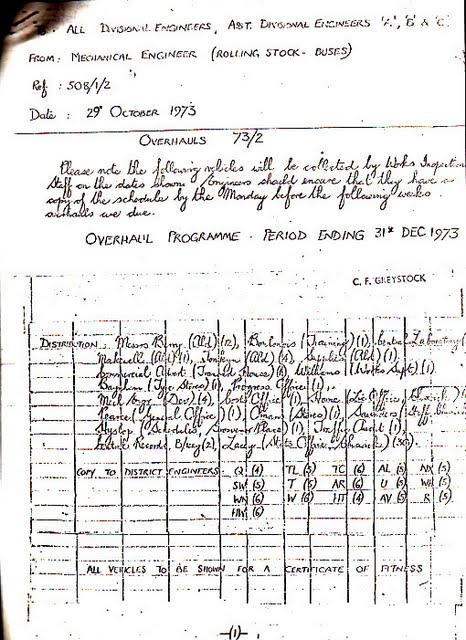 To: ALL DIVISIONAL ENGINEERS, ASST. DIVISIONAL ENGINEERS 'A', 'B' & 'C'
FROM: MECHANICAL ENGINEER (ROLLING STOCK - BUSES)
Ref: 508/1/2
Date: 29th OCTOBER 1973
OVERHAULS 73/2
Please note the following vehicles will be collected by Works Inspection
Staff on the dates shown. Engineers should ensure that they have a
copy of the schedule by the Monday before the following weeks
overhauls are due.
OVERHAUL PROGRAMME - PERIOD ENDING 31st DEC 1973
C. F. GREYSTOCK
DISTRIBUTION: Messrs (Ald) (12), (Training) (1), Central Laboratory (
(Ald) (1), (Ald) (4), Supplies (Ald) (1)
Commercial Advert (4), Williams (Works Supt) (1)
(Tyre Stores) (1), Progress Office (1),
Mech Engr (Dev) (4), Costs Office (1), Horne (Lic Office, Chiswick) (1)
Pearce (General Office) (1), (Stores) (1), Saunders (Staff,
(Schedules, Grosvenor Place) (1), Traffic Audit (1)
Records, (2), (Office, Chiswick) (30)
COPY TO DISTRICT ENGINEERS - Q (4) TL (5) TC (6) AL (5) NX (5)
SW (5) T (5) AR (6) U (5) WH (5)
WN (6) W (6) HT (4) AV (5) R (5)
HW (6)
ALL VEHICLES TO BE SHOWN FOR A CERTIFICATE OF FITNESS
-(1)-